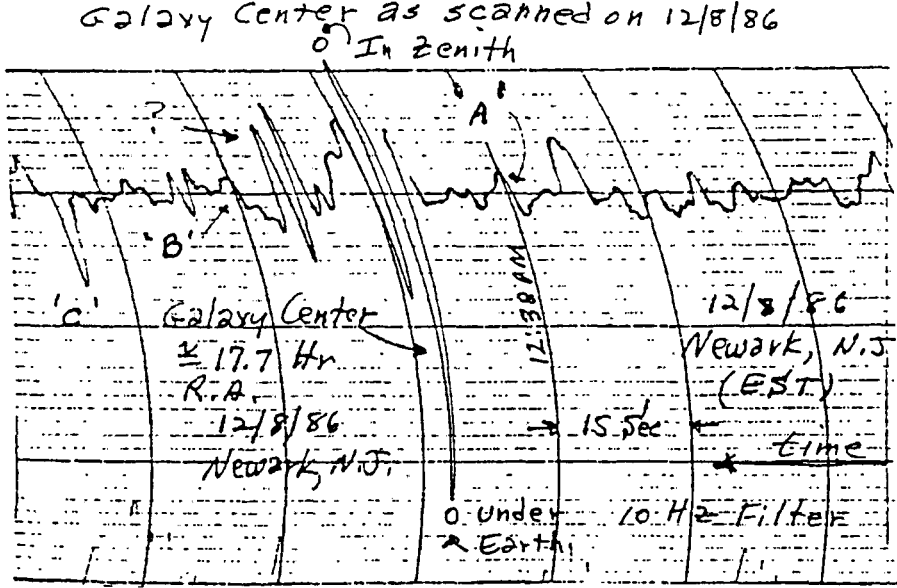 Galaxy Center as scanned on 12/8/86
0° In Zenith
"A"
?
'B'
'C'
12:38 AM
Galaxy Center
≅ 17.7 Hr
R.A.
12/8/86
Newark, N.J.
12/8/86
Newark, N.J
(EST)
15 Sec
time
0 under
Earth.
10 HZ Filter